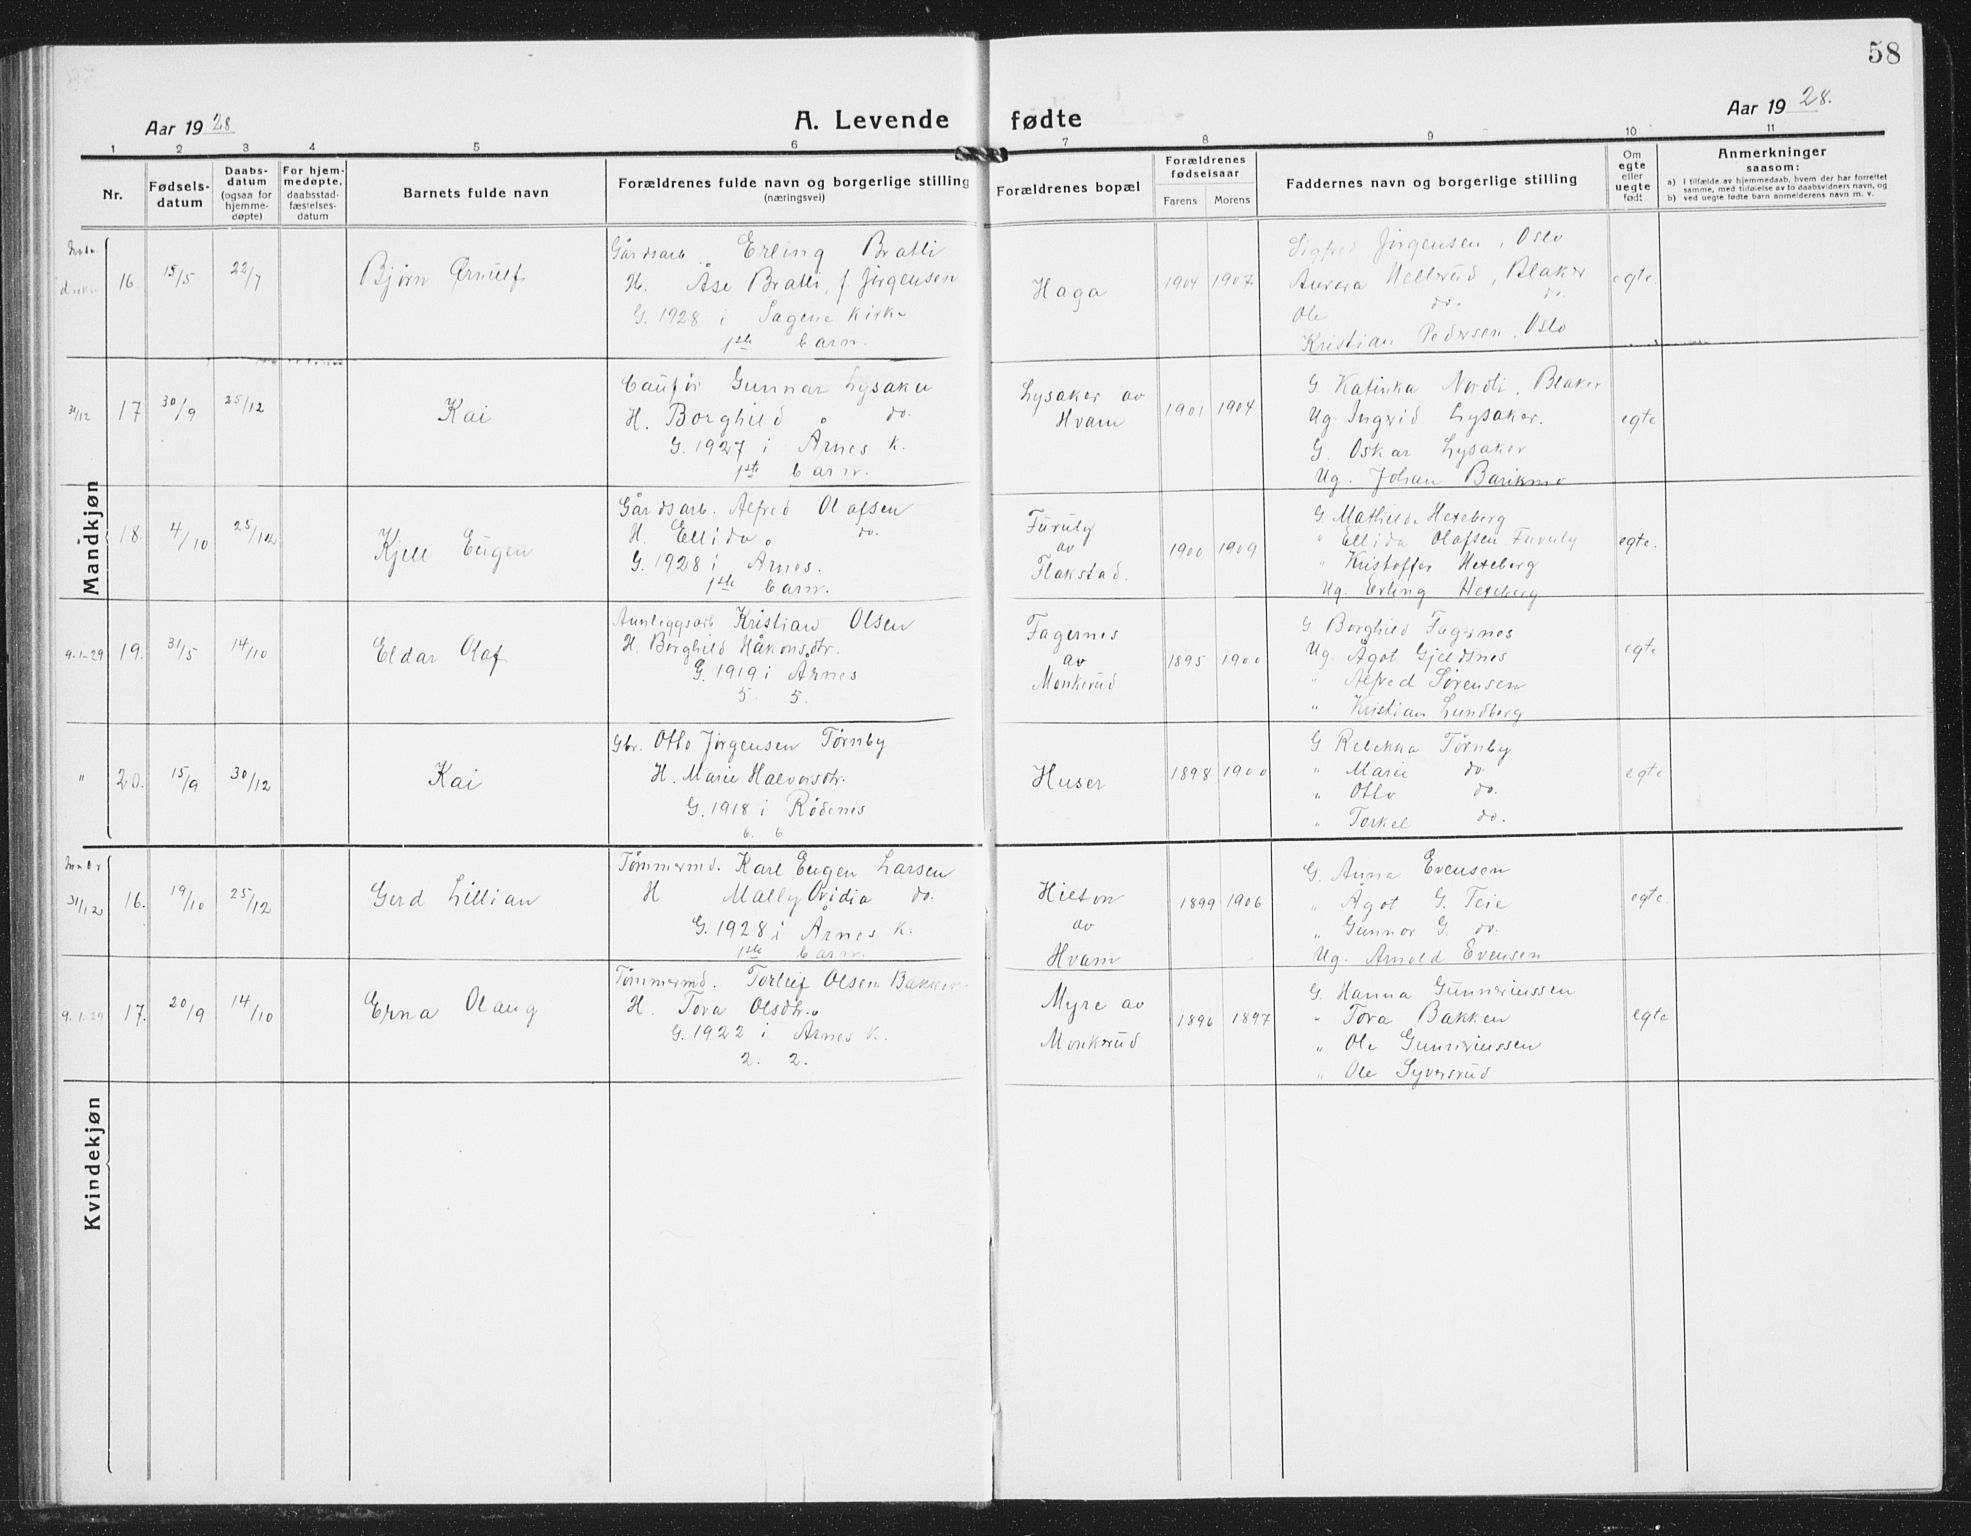 58
Aar 1928
A. Levende fødte
Aar 1928.
1 2 3 4 5 6 7 8 9 10 11
Nr.
Fødsels-
datum
Daabs-
datum
(ogsaa for
hjemme-
døpte)
For hjem-
medøpte,
daabsstad-
fæstelses-
datum
Barnets fulde navn
Forældrenes fulde navn og borgerlige stilling
(næringsvei)
Forældrenes bopæl
Forældrenes
fødselsaar
Farens Morens
Faddernes navn og borgerlige stilling
Om
egte
eller
uegte
født
Anmerkninger
saasom:
a) i tilfælde av hjemmedaab, hvem der har forrettet
samme, med tilføielse av to daabsvidners navn, og
b) ved uegte fødte barn anmelderens navn m. v.
Mandkjøn
16 15/5 22/7
Bjørn Ørnulf
Gårdsarb. Erling Bratli
H. Åse Bratli, f. Jørgensen
G. 1928 i Sagene kirke
1ste barn.
Haga
1904 1907
Sigfred Jørgensen, Oslo
Aurora Hellerud, Blaker
Ole do. do.
Kristian Pedersen, Oslo
egte.
31/12 17 30/9 25/12
Kai
Gunnar Lysaker
H. Borghild do.
G. 1927 i Årnes k.
1ste barn.
Lysaker av
Hvam
1901 1904
G Katinka Nordli, Blaker
Ug. Ingrid Lysaker.
G. Oskar Lysaker
Ug. Johan Barikmo
egte
18. 4/10 25/12
Kjell Eugen
Gårdsarb. Alfred Olafsen
H. Ellida do.
G. 1928 i Årnes.
1ste barn.
Furuly
av
Flakstad.
1900 1909
G. Mathilde Hexeberg
" Ellida Olafsen Furuly
" Kristoffer Hexeberg
Ug. Erling Hexeberg
egte.
9-1-29 19. 31/5 14/10
Eldar Olaf
Anleggsarb Kristian Olsen
H. Borghild Håkonsdtr.
G. 1919 i Årnes
5. 5.
Fagernes
av
Monkerud
1895 1900
G. Borghild Fagernes
Ug. Ågot Gjeldsnes
" Alfred Sørensen
" Kristian Lundberg
egte
" 20. 15/9 30/12
Kai
Gbr. Otto Jørgensen Tørnby
H. Marie Halvorsdtr.
G. 1918 i Rødenes
6. 6
Huser
1898 1900
G Rebekka Tørnby
" Marie do.
" Otto do.
" Torkel do.
egte
Kvindekjøn
31/12 16. 19/10 25/12
Gerd Lillian
Tømmermd. Karl Eugen Larsen
H Mally Ovidia do.
G. 1928 i Årnes k.
1ste barn.
av
Hvam
1899 1906
G. Anna Evensen
" Ågot G. Teie
" Gunnar G. do.
Ug. Arnold Evensen
egte.
9.1.29 17. 20/9 14/10
Erna Olaug
Tømmermd. Torleif Olsen Bakken
H. Tora Olsdtr.
G. 1922 i Årnes k.
2. 2.
Myre av
Monkerud
1896 1897
G. Hanna Gunneriussen
" Tora Bakken
" Ole Gunneriussen
" Ole Syversrud
egte